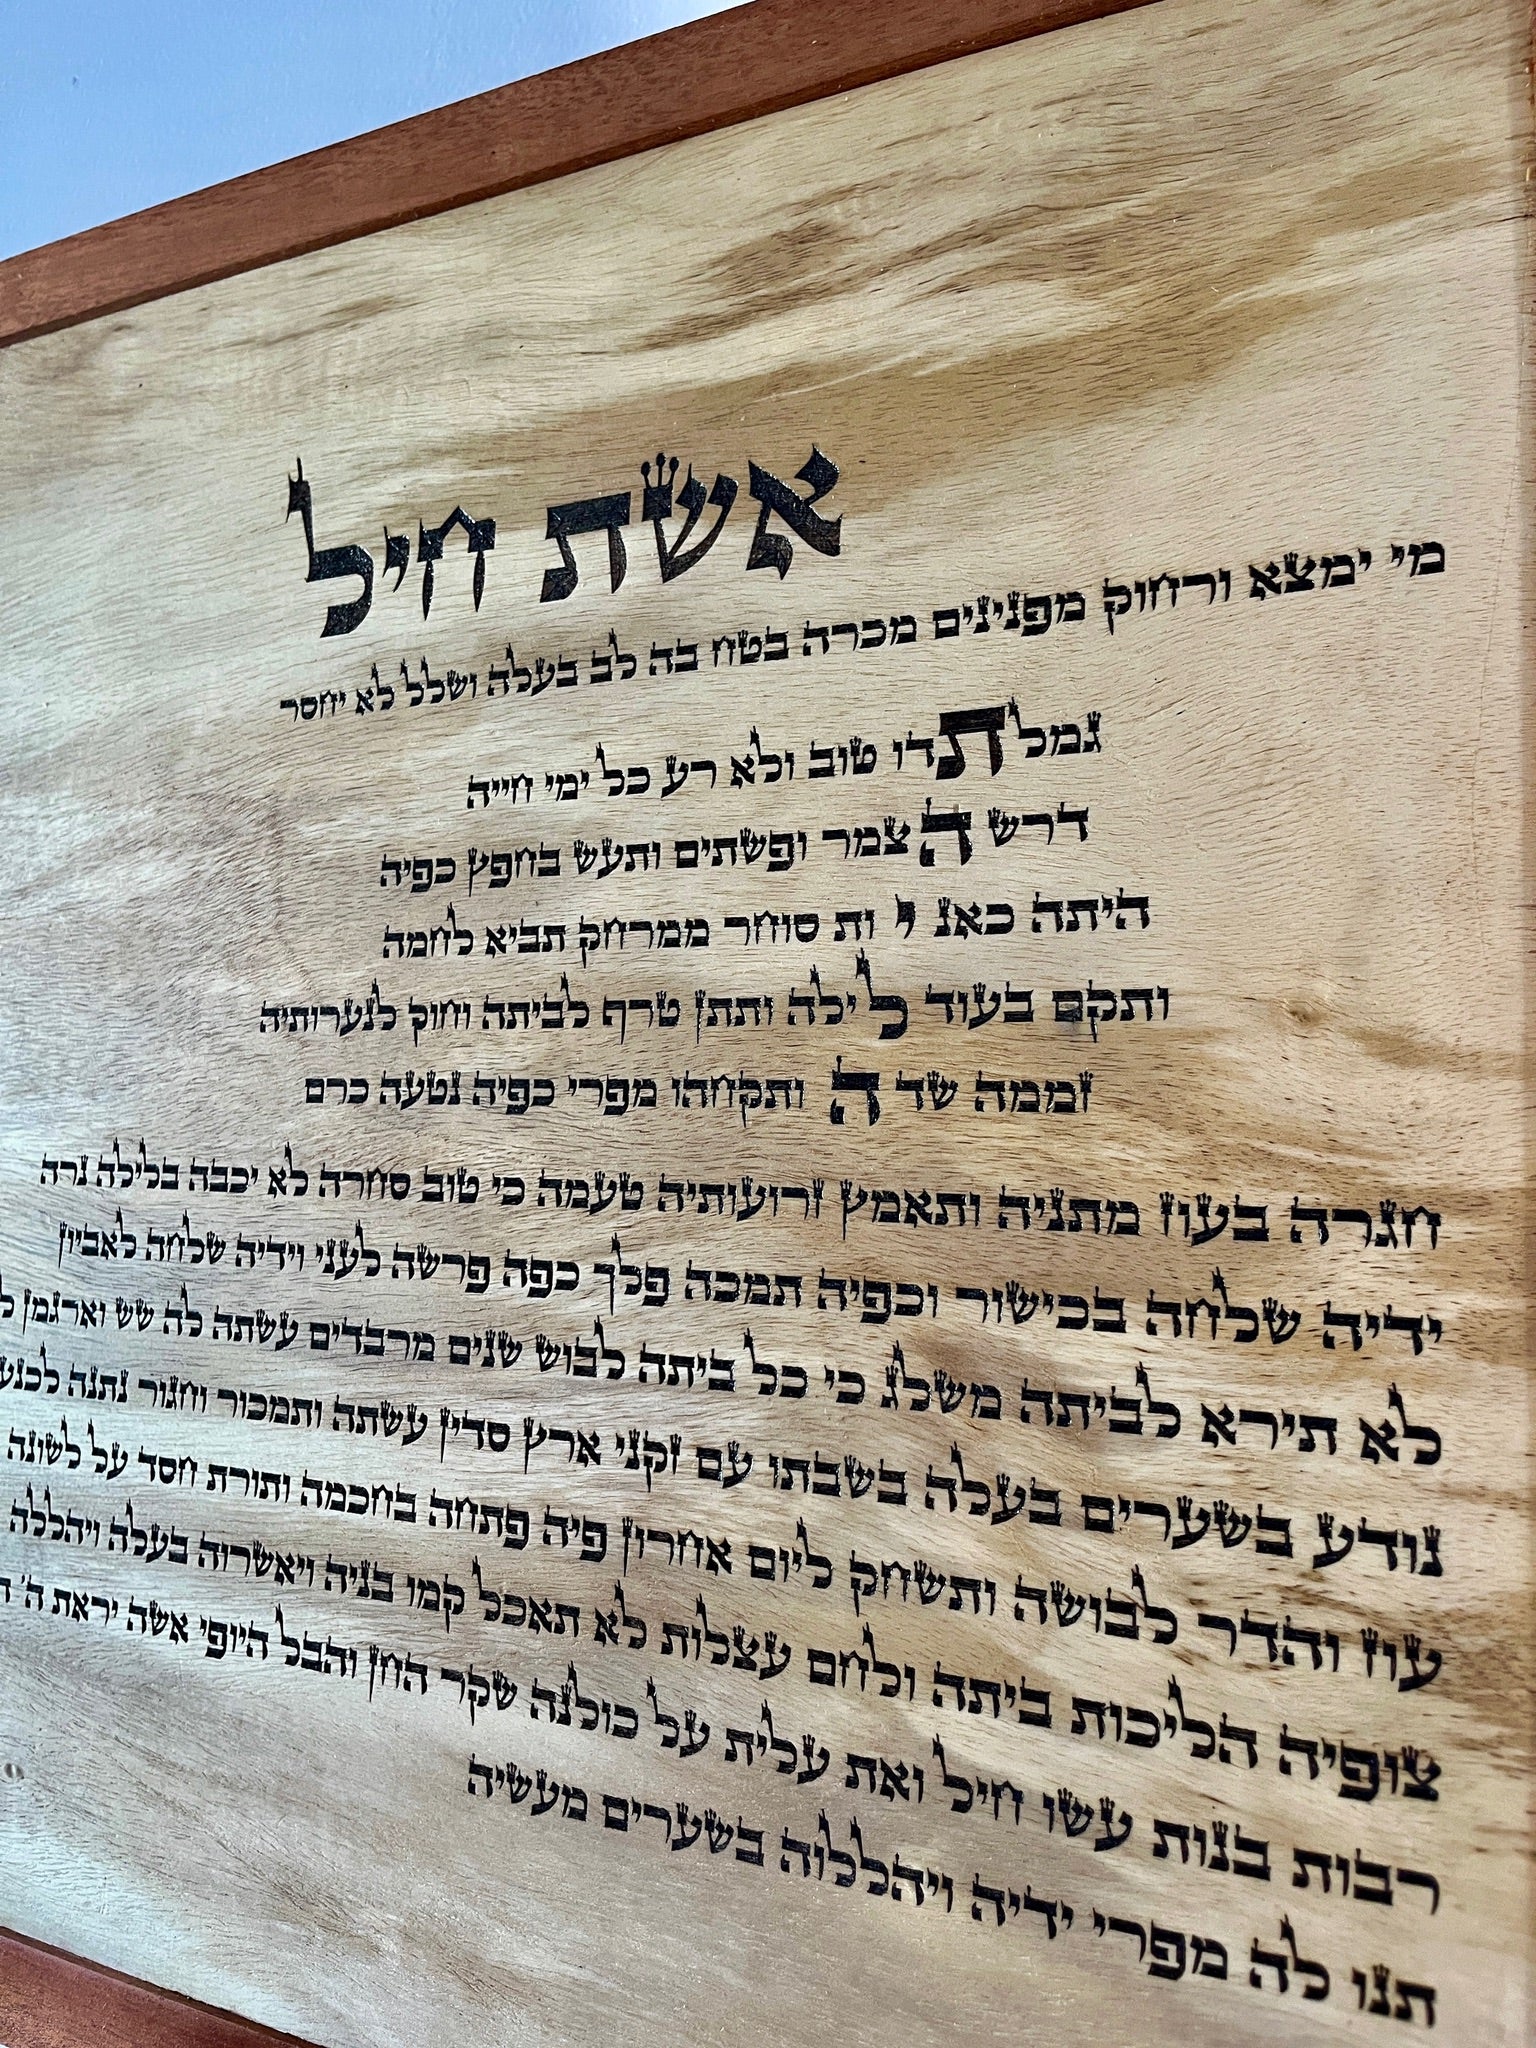 אשת חיל
מי ימצא ורחוק מפנינים מכרה בטח בה לב בעלה ושלל לא יחסר
גמלתדו טוב ולא רע כל ימי חייה
דרש ה צמר ופשתים ותעש בחפץ כפיה
היתה כאנ י ות סוחר ממרחק תביא לחמה
ותקם בעוד ל ילה ותתן טרף לביתה וחוק לנערותיה
זממה שד ה ותקחהו מפרי כפיה נטעה כרם
חגרה בעוז מתניה ותאמץ זרועותיה טעמה כי טוב סחרה לא יכבה בלילה נרה
ידיה שלחה בכישור וכפיה תמכה פלך כפה פרשה לעני וידיה שלחה לאביון
לא תירא לביתה משלג כי כל ביתה לבוש שנים מרבדים עשתה לה שש וארגמן
נודע בשערים בעלה בשבתו עם זקני ארץ סדין עשתה ותמכור וחגור נתנה
עוז והדר לבושה ותשחק ליום אחרון פיה פתחה בחכמה ותורת חסד על לשונה
צופיה הליכות ביתה ולחם עצלות לא תאכל קמו בניה ויאשרוה בעלה ויהללה
רבות בנות עשו חיל ואת עלית על כולנה שקר החן והבל היופי אשה יראת ה'
תנו לה מפרי ידיה ויהללוה בשערים מעשיה